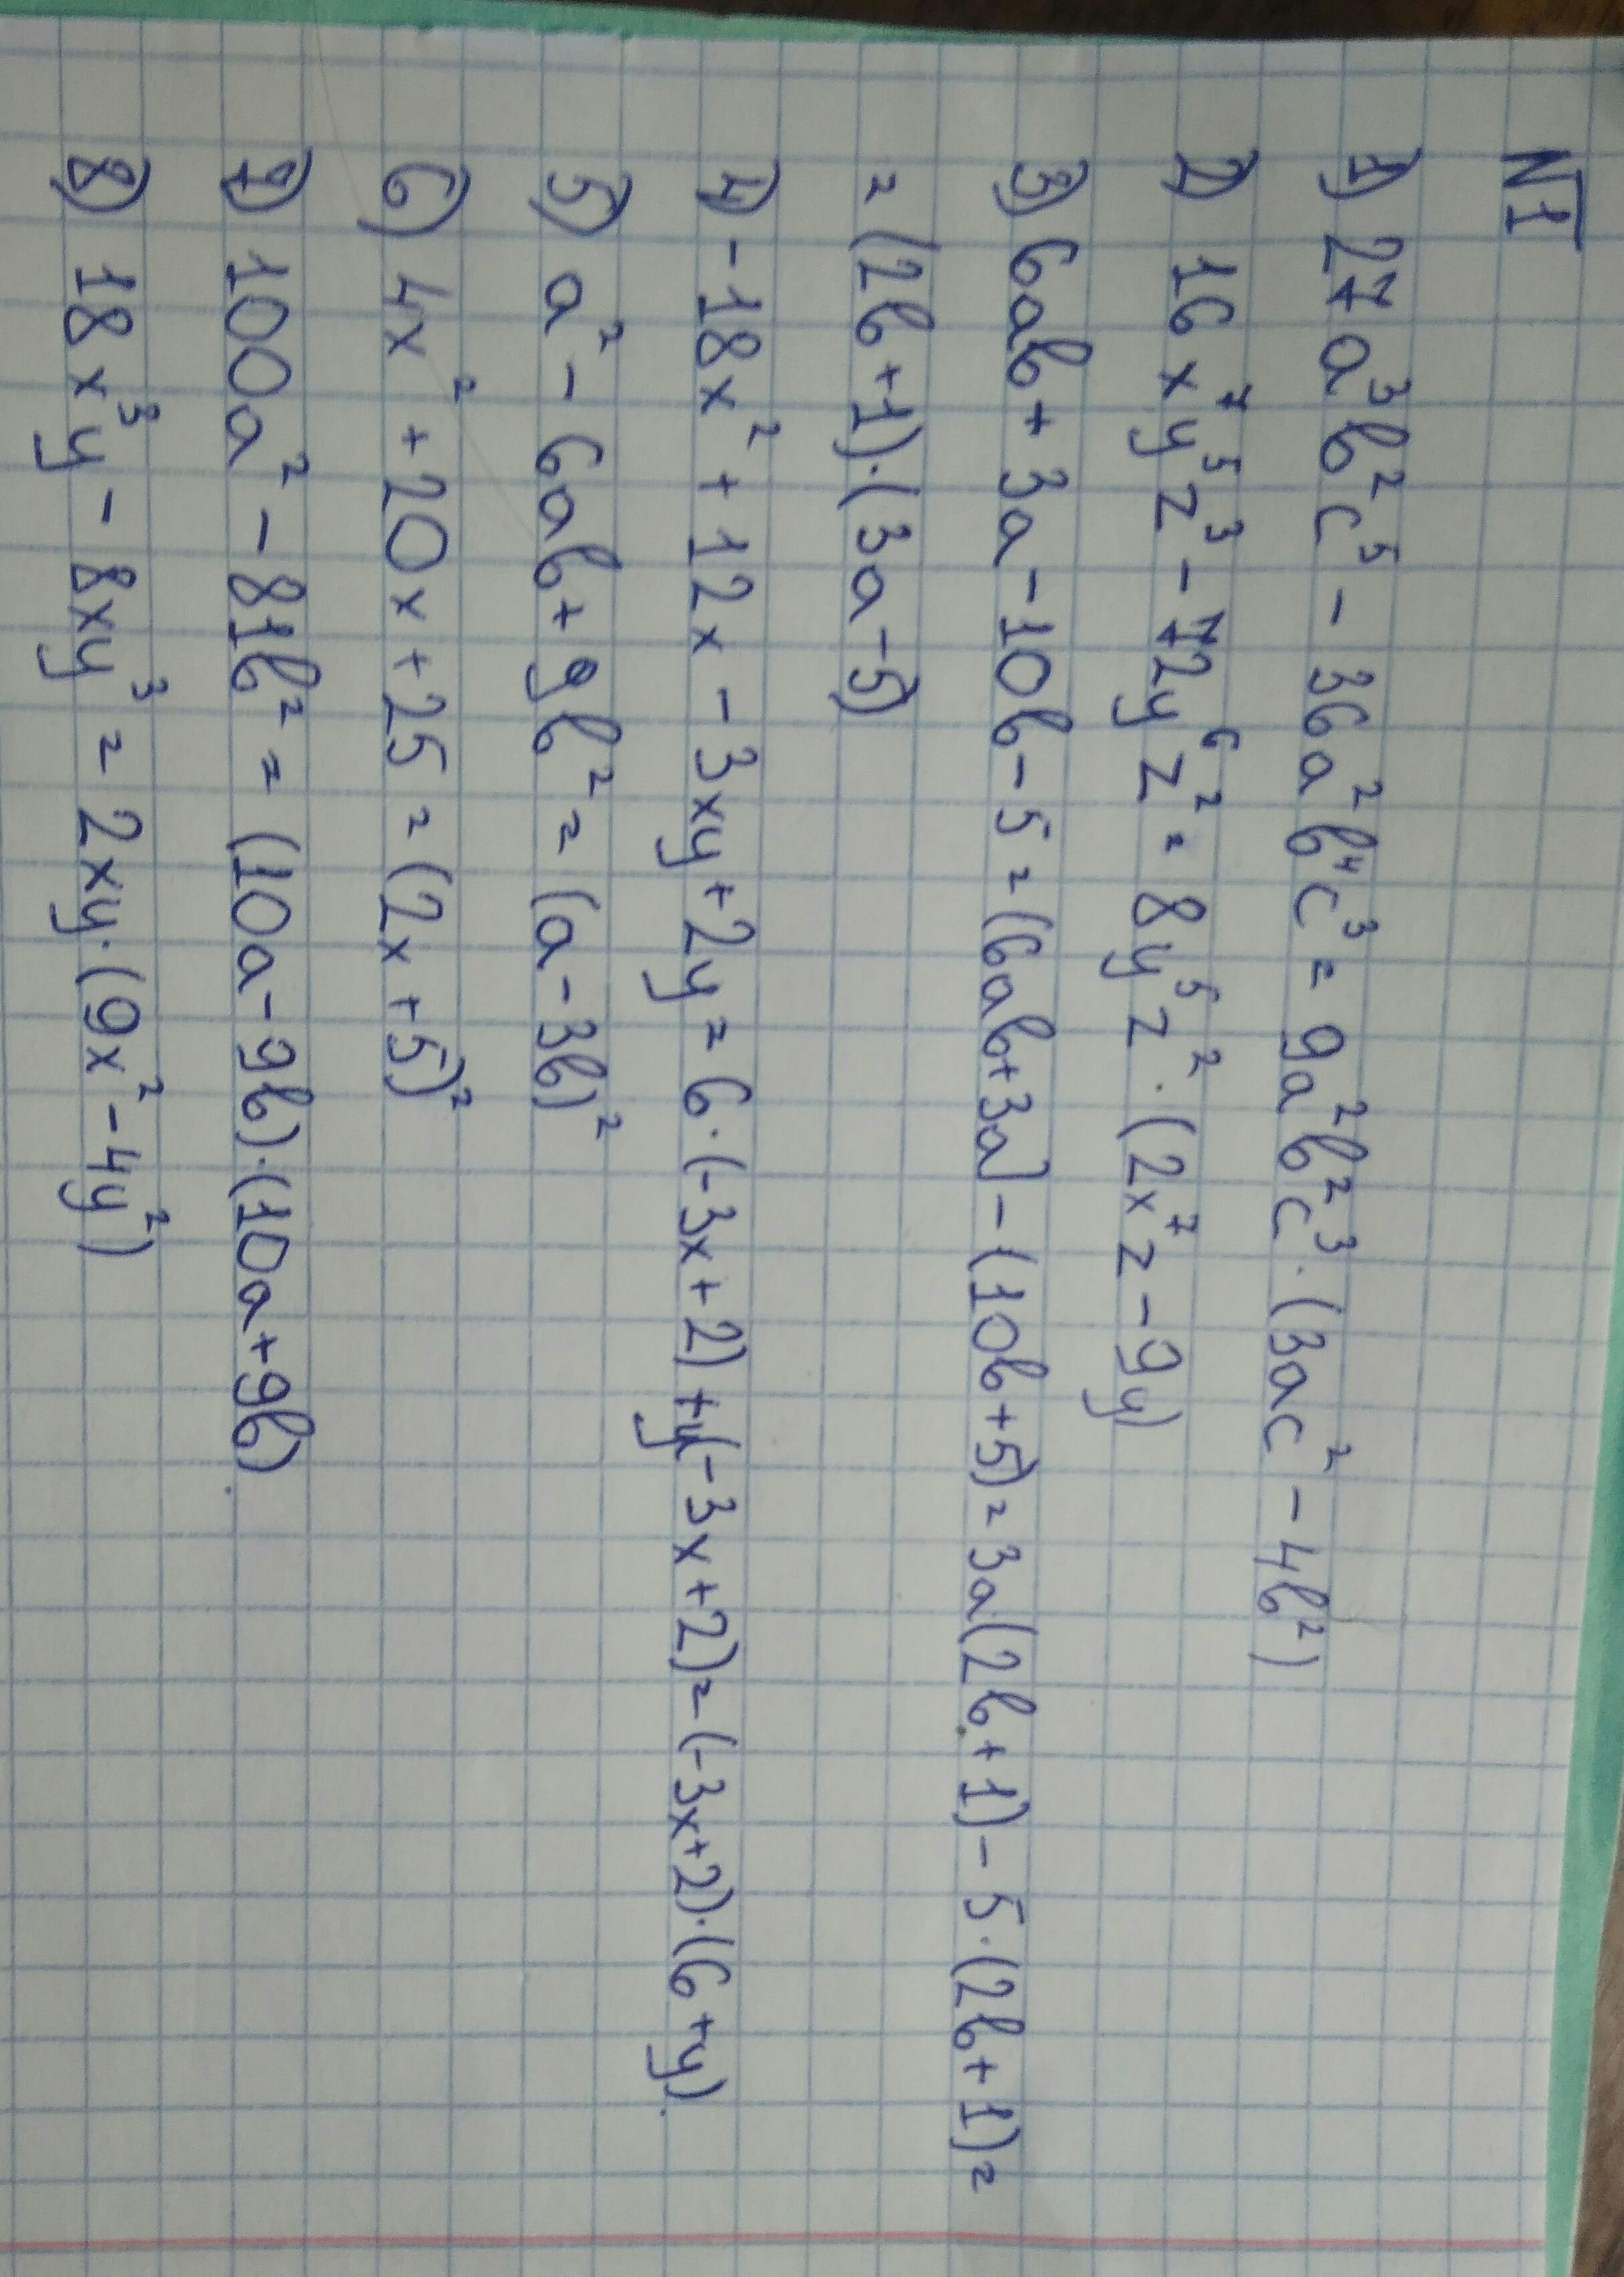 N1
1) 27a³b²c⁵ - 36a²b⁴c³ = 9a²b²c³·(3ac² - 4b²)
2) 16x⁷y⁵z³ - 72y⁶z² = 8y⁵z²·(2x⁷z - 9y)
3) 6ab + 3a - 10b - 5 = (6ab + 3a) - (10b + 5) = 3a(2b + 1) - 5·(2b + 1) =
= (2b + 1)·(3a - 5)
4) -18x² + 12x - 3xy + 2y = 6·(-3x + 2) + y(-3x + 2) = (-3x + 2)·(6 + y).
5) a² - 6ab + 9b² = (a - 3b)²
6) 4x² + 20x + 25 = (2x + 5)²
7) 100a² - 81b² = (10a - 9b)·(10a + 9b).
8) 18x³y - 8xy³ = 2xy·(9x² - 4y²)